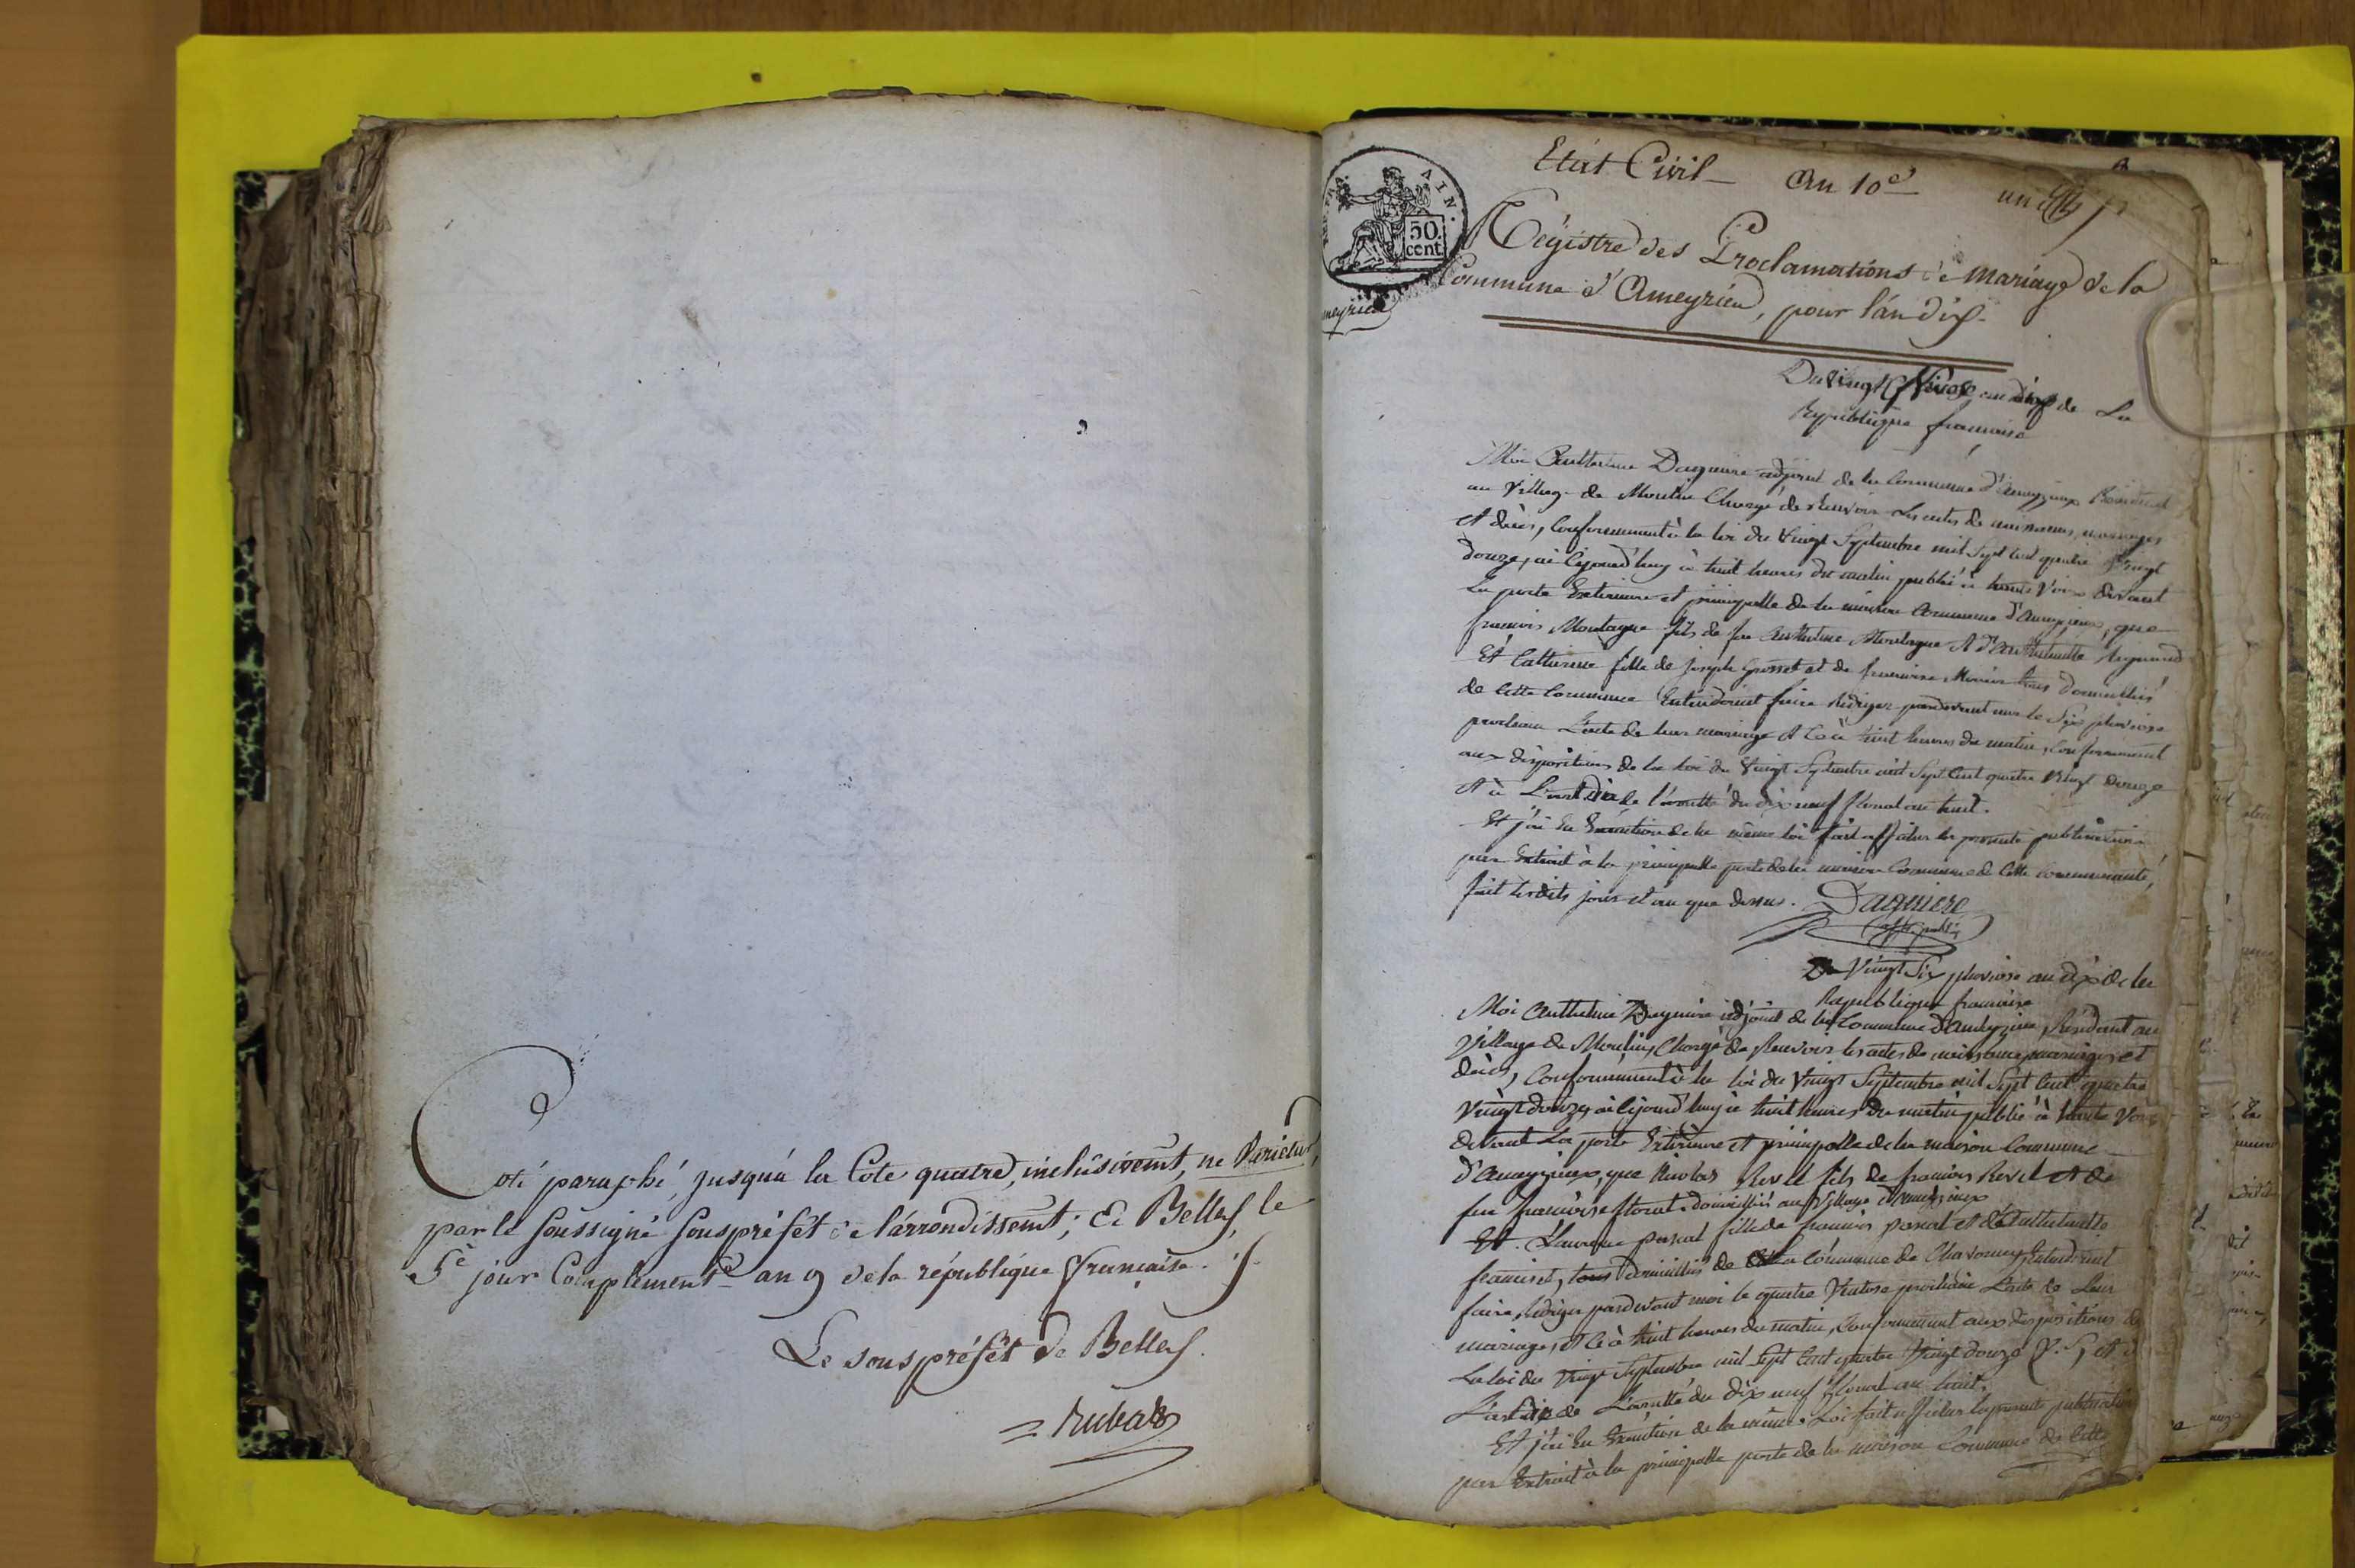 Coté paraphé, jusqu'à la Cote quatre, inclusivemt, ne Varietur,
par le soussigné souspréfet de l'arrondissemt; De Belley, le
5e jour Complément an 9 de la république française.
Le souspréfét de Belley.
Rubat
Etat Civil An 10e un
AIN.
50.
cent
Régistre des Proclamations de Mariage de la
Commune d'Ameyzieu, pour l'an dix
Du Vingt Nivose an dix de La
République francaise
Moi Anthelme Dagniere adjoint de la Commune d'Ameyzieux Résidant
au Village de Moulin Chargé de recevoir Les actes de naissances, mariages
et décès, Conformement à la loi du Vingt Septembre mil Sept Cent quatre Vingt
douze, ai Cejourd'huy à huit heures du matin publié à haute Voix devant
La porte Exterieure et principalle de la maison Commune d'Ameyzieux, que
francois Montagne fils de feu Anthelme Montagne et d'Anthelmette
Et Catherine fille de joseph Grosset et de francoise tous domiciliés
de Cette Commune Entendoient faire Rediger pardevant moi le Six pluviose
prochain L'acte de leur mariage et Ce à huit heures du matin, Conformement
aux dispositions de la loi du Vingt Septembre mil Sept Cent quatre Vingt Douze
et à L'art. dix de l'arretté du dix neuf floreal an huit.
Et j'ai En Execution de la même loi fait afficher la presente publication
par Extrait à la principalle porte de la maison Commune de Cette communauté,
fait lesdits jour et an que dessus. Dagniere
off. public
Du Vingt Six pluviose an dix de la
République francaise
Moi Anthelme Dagniere adjoint de la Commune d'Ameyzieu, Résidant au
Village de Moulin, Chargé de Recevoir les actes de naissance, mariages et
décès, Conformement à la loi du Vingt Septembre mil Sept Cent quatre
Vingt douze, ai Cejourd'huy à huit heures du matin publié à haute Voix
devant La porte Exterieure et principalle de la maison Commune
d'Ameyzieux, que Nicolas Revel fils de francois Revel et de
feu francoise domicilié au Village d'Ameyzieux
Et Laurence pascal fille de francois pascal et d'Anthelmette
francised, tous domiciliés de la Commune de Chavornay, Entendoient
faire Rediger pardevant moi le quatre Ventose prochain L'acte de Leur
mariage, et Ce à huit heures du matin, Conformement aux dispositions de
La loi du Vingt Septembre mil Sept Cent quatre Vingt douze et à
L'art. dix de L'arretté du dix neuf floreal an huit.
Et j'ai En Execution de la même Loi fait afficher la presente publication
par Extrait à la principalle porte de la maison Commune de Cette